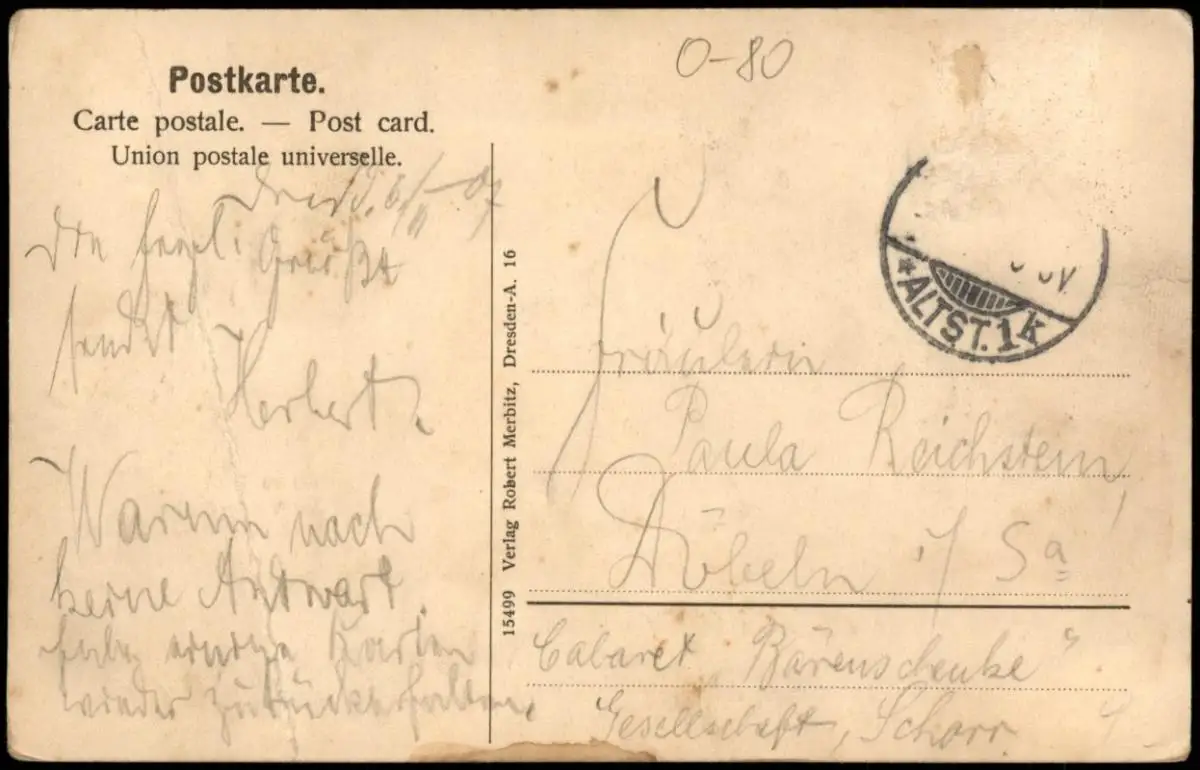 Postkarte.
Carte postale. — Post card.
Union postale universelle.
0-80
Die herzl. Grüße
sendet
Herbert.
Warum noch
keine Antwort.
habe einige Karten
wieder zurückerhalten.
15499 Verlag Robert Merbitz, Dresden-A. 16
*ALTST. 1k
Fräulein
Paula Reichstein,
Döbeln i/Sa
Cabaret „Bärenschenke".
Gesellschaft, Schorr